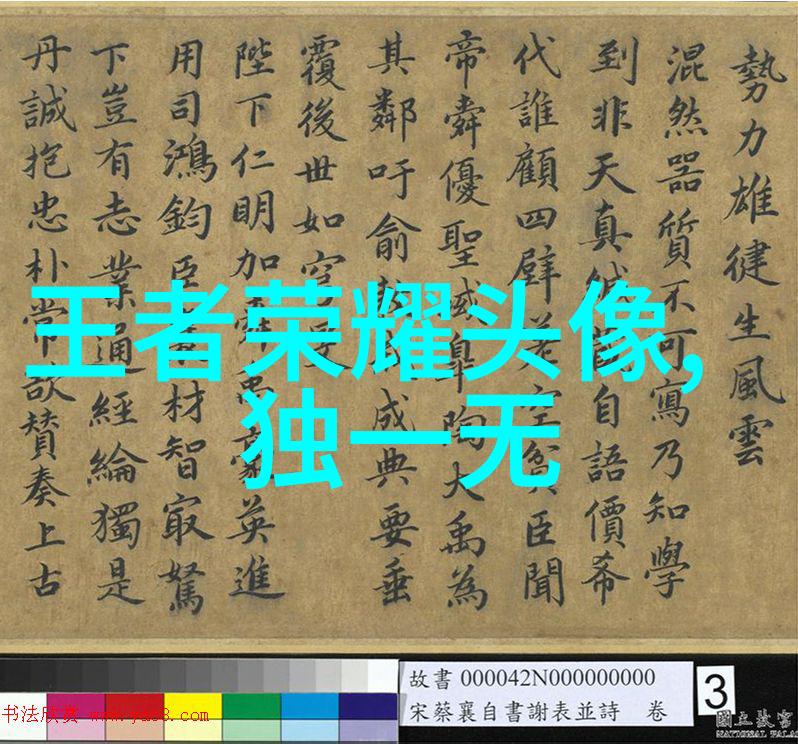 勢力雄徤生風雲
混然器質不可寫乃知學
到非天真自語價希
代誰顧四壁若空貧臣聞
帝舜優聖咸皐陶大禹為
其鄰吁俞成典要垂
覆後世如穹
陛下仁明加舜英進
用司鴻鈞臣材智最駑
下豈有志業通經綸獨是
丹誠抱忠朴常欲賛奏上古
王者荣耀头像,
独一无
故書 000042N000000000
宋蔡襄自書謝表並詩 卷
3
國立故宮
NATIONAL PALA
书法欣赏